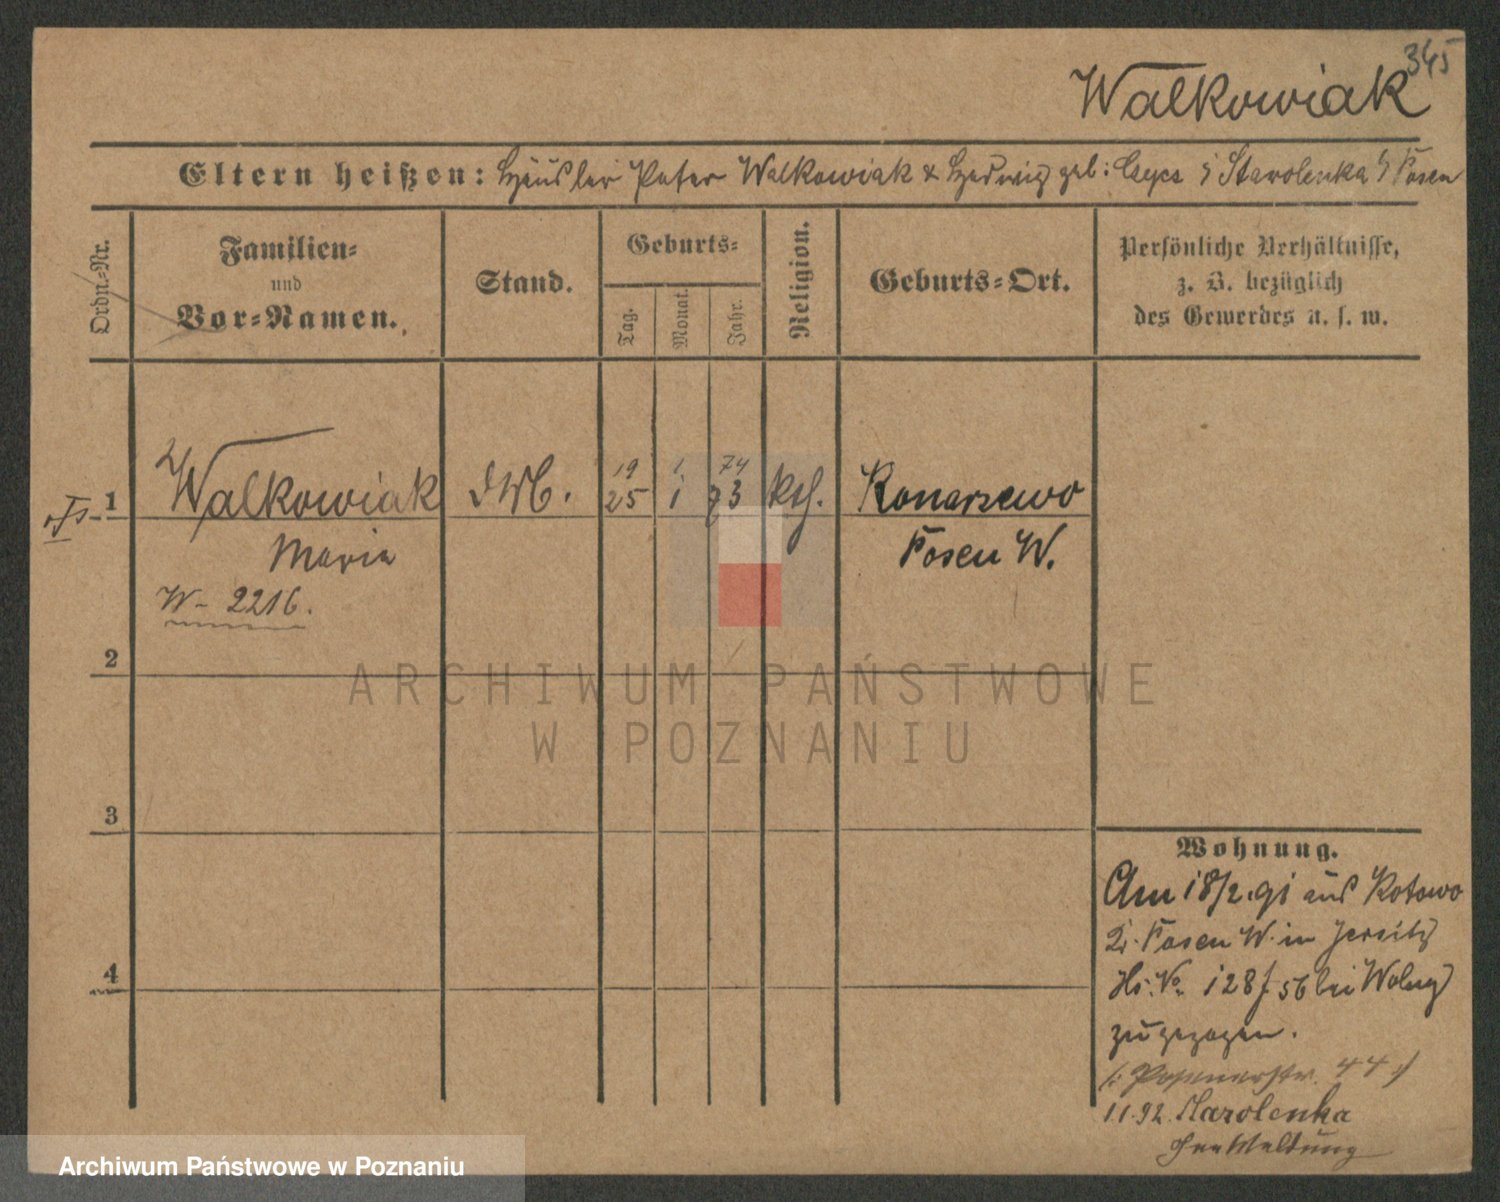 345
Walkowiak
Eltern heißen: Häusler Peter Walkowiak & Hedwig geb: Starolenka Posen
Ordn.-Nr.
Familien-
und
Vor-Namen.
Stand.
Geburts-
Tag.
Monat.
Jahr.
Religion.
Geburts-Ort.
Persönliche Verhältnisse,
z. B. bezüglich
des Gewerbes u. s. w.
1
Walkowiak
Maria
W- 2216.
19 1 74
25 1 73
kth.
Konarzewo
Posen W.
2
3
4
Wohnung.
Am 18/2.91 aus Kotowo
Kr. Posen W. in Jersitz
Hs. No. 128/56 bei
zugezogen.
(: Posenerstr. 44 :)
1.1.92. Starolenka
ARCHIWUM PAŃSTWOWE
W POZNANIU
Archiwum Państwowe w Poznaniu